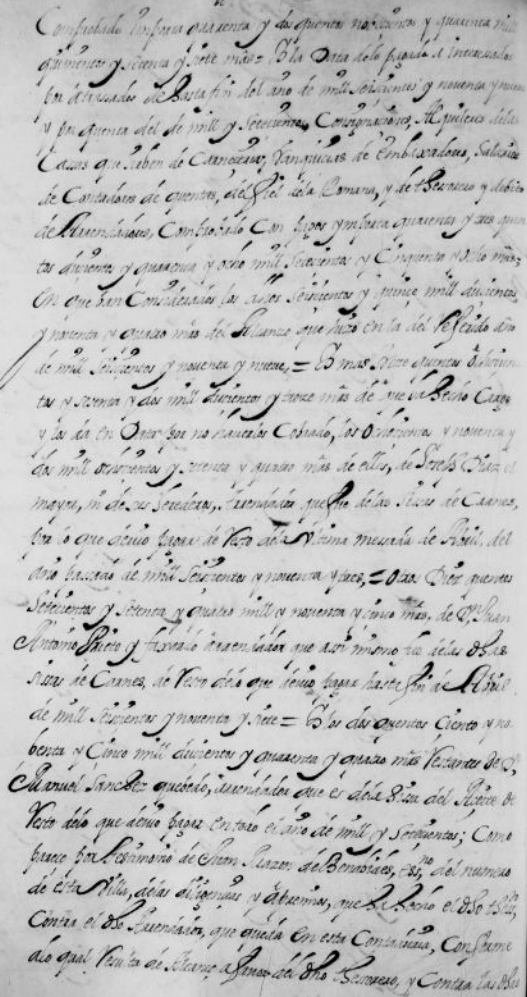 Comprobado Ymporta quarenta y dos quentos novecientos y quarenta mill
quinientos y setenta y siete mrs = Y la Data delo pagado a Interesados
por atrasados de hasta fin del año de mill seiscientos y noventa y nueve
y por quenta del de mill y setecientos, Consignaciones, Alquileres delas
Casas que sirben de Carnezerias, franquicias de Embaxadores, Salarios
de Contadores de quentas, del fiel dela Romana, y de thesorero y debitos
de Arrendadores, Comprobado Con ymporta quarenta y tres quen
tos ducientos y quarenta y ocho mill setecientos y Cinquenta y ocho mrs =
en que ban Considerados los seiscientos y quince mill ducientos
y noventa y quatro mrs del Alcanze que hizo en la del Referido año
de mill seiscientos y noventa y nueve, = Y mas siete quentos
tos y setenta y dos mill ducientos y trece mrs de que se ha hecho Cargo
y los da en Data por no haverlos Cobrado, los Ochocientos y noventa y
dos mill ochocientos y setenta y quatro mrs de ellos, de Diaz el
mayor, u de sus herederos, Arrendador que fue delas sisas de Carnes,
por lo que devio pagar de resto dela Ultima mesada de Abril del
año pasado de mill seiscientos y noventa y tres, = Otros Diez quentos
Setecientos y setenta y quatro mill y noventa y cinco mrs, de Dn Juan
Antonio Prieto y faxardo arrendador que asi mismo fue delas dhas
sisas de Carnes, de resto delo que devio pagar hasta fin de Abril
de mill seiscientos y noventa y siete = Y los dos quentos Ciento y no
benta y Cinco mill ducientos y quarenta y quatro mrs restantes de Dn
Manuel Sanchez quebedo, arrendador que es dela sisa del Azeite de
resto delo que devio pagar en todo el año de mill y setecientos; Como
parece por testimonio de de Benabides, essno del numero
de esta Villa, delas diligencias y apremios, que ha hecho el dho thesro
Contra el dho Arrendador, que queda en esta Contaduria, Conforme
alo qual resulta de Alcanze a favor del dho thesorero, y Contra las dhas